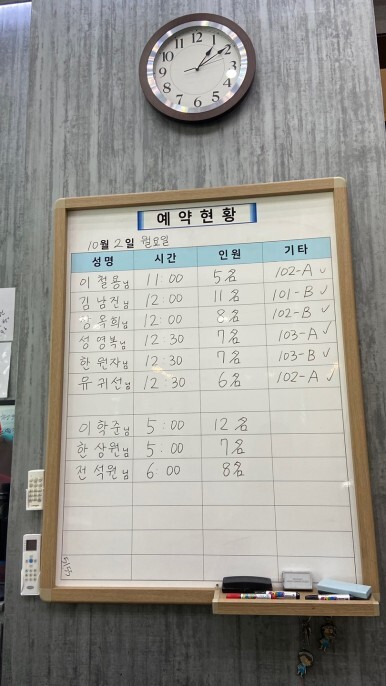 12 1 2 3 4 5 6 7 8 9 10 11
예약현황
10월 2일 월요일
성명 시간 인원 기타
이철용님 11:00 5名 102-A ✓
김남진님 12:00 11名 101-B ✓
장옥희님 12:00 8名 102-B ✓
성영복님 12:30 7名 103-A ✓
한원자님 12:30 7名 103-B ✓
유귀선님 12:30 6名 102-A ✓
이학준님 5:00 12名
한상원님 5:00 7名
전석원님 6:00 8名